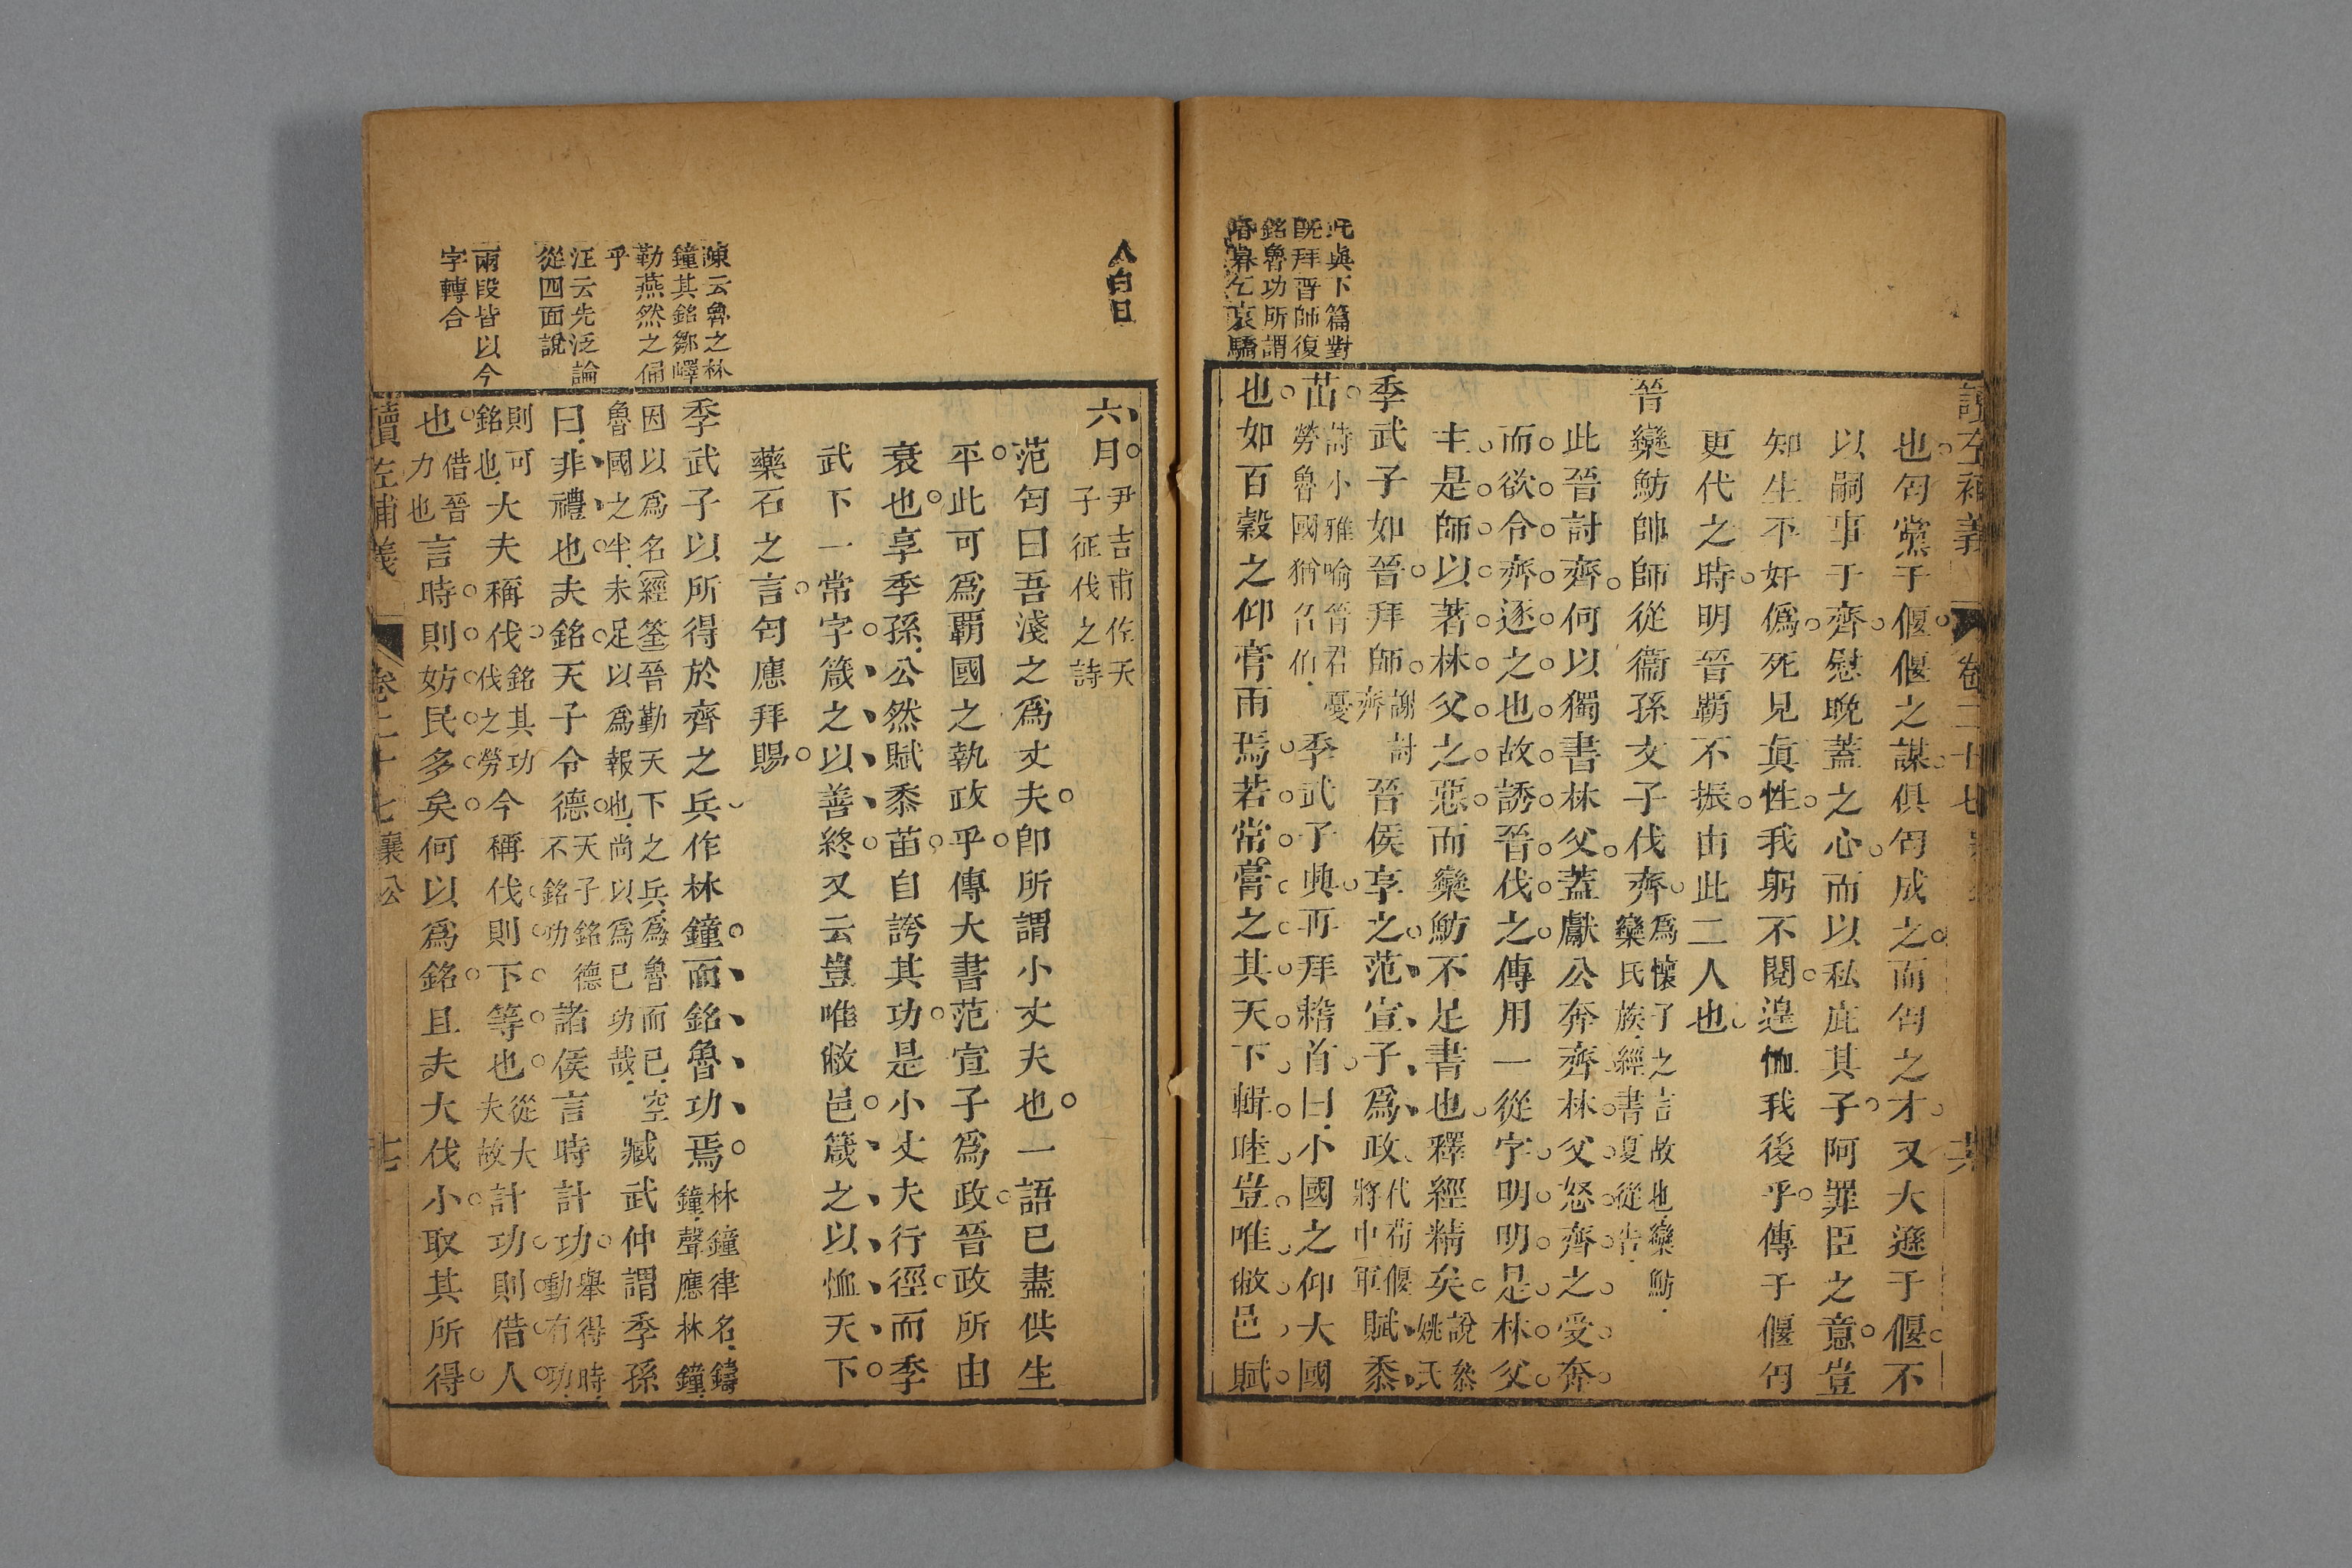 讀左補義
卷二十七
六
也匄黨于偃偃之謀俱匄成之而匄之才又大遜于偃不
以嗣事于齊慰晚蓋之心而以私庇其子阿罪臣之意豈
知生不奸僞死見眞性我躬不閱遑恤我後乎傳于偃匄
更代之時明晉霸不振由此二人也
晉欒魴帥師從衞孫文子伐齊
爲懷子之言故也欒魴
欒氏族經書夏從告
此晉討齊何以獨書林父蓋獻公奔齊林父怒齊之受奔
而欲令齊逐之也故誘晉伐之傳用一從字明明是林父
主是師以著林父之惡而欒魴不足書也釋經精矣
說參
姚氏
季武子如晉拜師
謝討
齊
晉侯享之范宣子爲政
代荀偃
將中軍
賦黍
苗
詩小雅喻晉君憂
勞魯國猶召伯
季武子興再拜稽首曰小國之仰大國
也如百穀之仰膏雨焉若常膏之其天下輯睦豈唯敝邑賦
此與下篇對
旣拜晉師復
銘魯功所謂
昏暮乞哀驕
人白日
六月
尹吉甫佐天
子征伐之詩
范匄曰吾淺之爲丈夫卽所謂小丈夫也一語已盡供生
平此可爲霸國之執政乎傳大書范宣子爲政晉政所由
衰也享季孫公然賦黍苗自誇其功是小丈夫行徑而季
武下一常字箴之以善終又云豈唯敝邑箴之以恤天下
藥石之言匄應拜賜
季武子以所得於齊之兵作林鐘而銘魯功焉
林鐘律名鑄
鐘聲應林鐘
因以爲名經筌晉勤天下之兵爲魯而已空
魯國之半未足以爲報也尚以爲己功哉
臧武仲謂季孫
曰非禮也夫銘天子令德
天子銘德
不銘功
諸侯言時計功
舉得時
動有功
則可
銘也
大夫稱伐
銘其功
伐之勞
今稱伐則下等也
從大
夫故
計功則借人
也
借晉
力也
言時則妨民多矣何以爲銘且夫大伐小取其所得
陳云魯之林
鐘其銘鄒嶧
勒燕然之俑
乎
汪云先泛論
從四面說
兩段皆以今
字轉合
讀左補義
卷二十七襄公
七